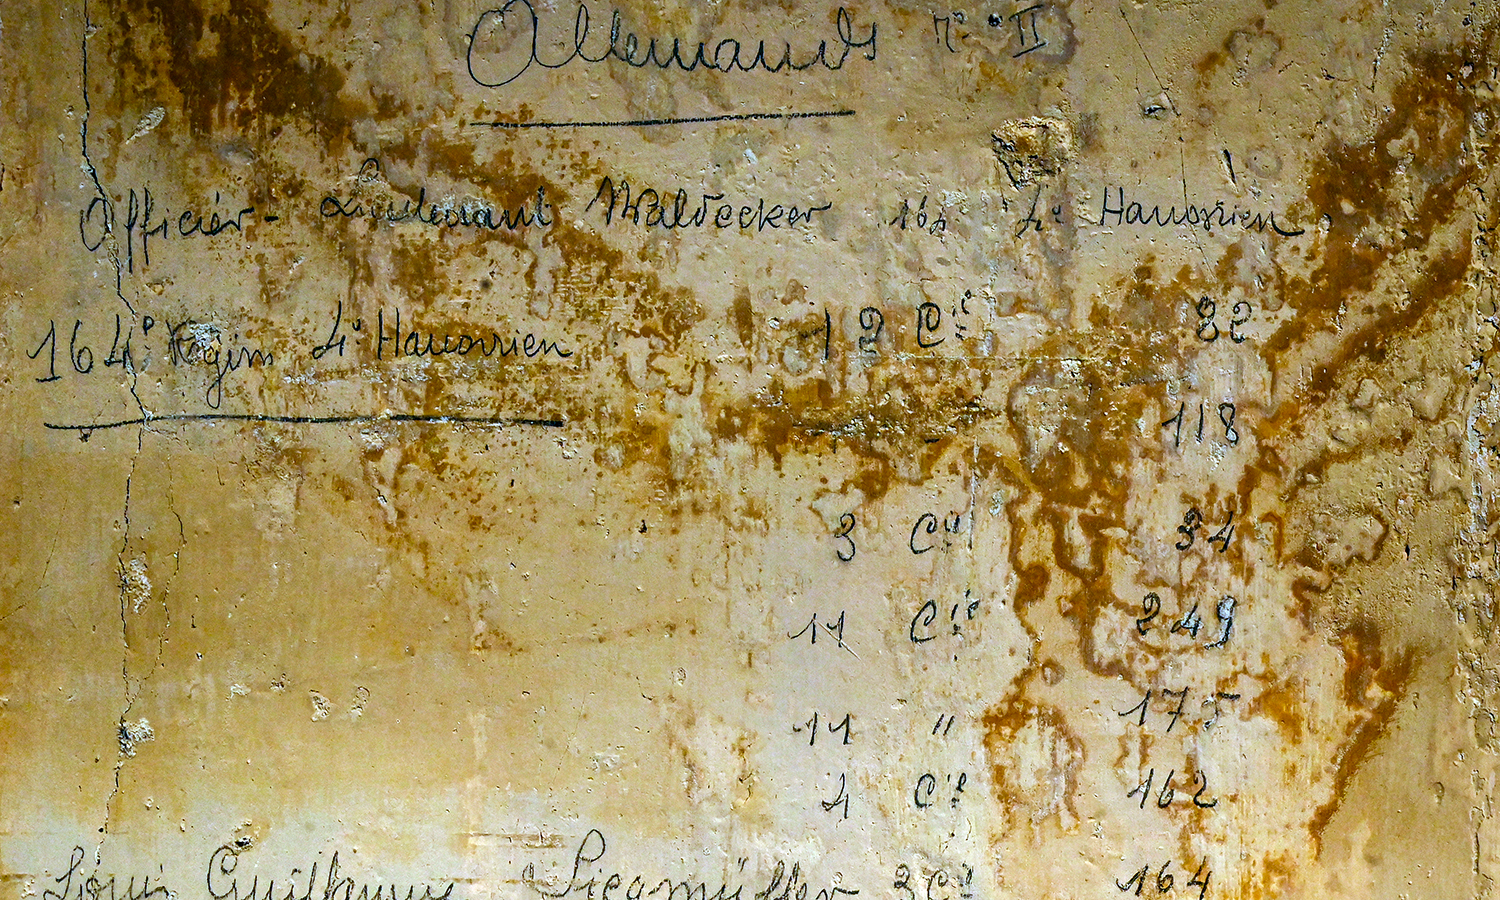 Allemands N° II
Officier - Lieutenant Waldecker 164 4e Hanovrien
164e Regim 4e Hanovrien 12 Cie 32
118
3 Cie 34
11 Cie 249
11 " 175
4 Cie 162
Louis Guillaume Siegmüller 3 Cie 164